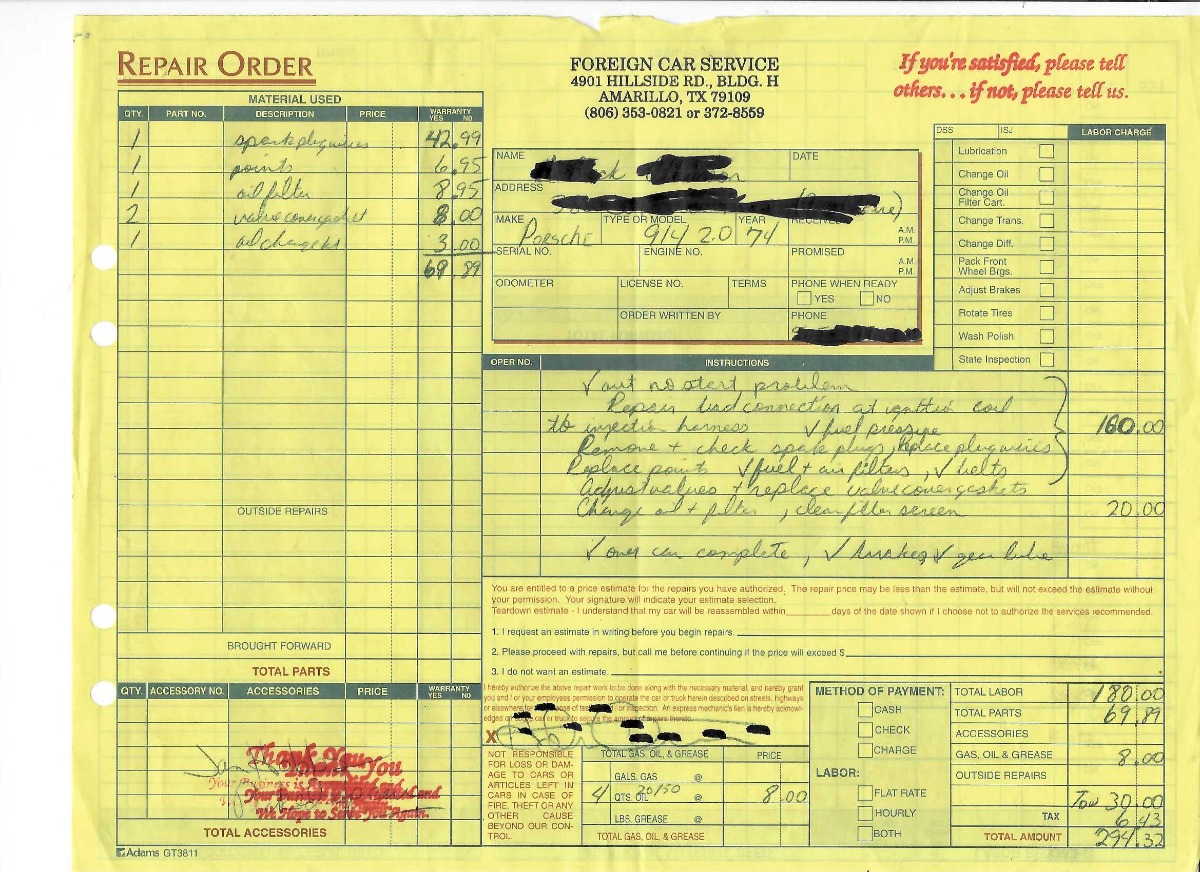 REPAIR ORDER
FOREIGN CAR SERVICE
4901 HILLSIDE RD., BLDG. H
AMARILLO, TX 79109
(806) 353-0821 or 372-8559
If you're satisfied, please tell
others... if not, please tell us.
MATERIAL USED
QTY. PART NO. DESCRIPTION PRICE WARRANTY YES NO
1 spark plug wires 42.99
1 points 6.95
1 oil filter 8.95
2 valve cover gasket 8.00
1 oil change kit 3.00
69.89
OUTSIDE REPAIRS
BROUGHT FORWARD
TOTAL PARTS
NAME DATE
ADDRESS
MAKE TYPE OR MODEL YEAR RECEIVED A.M. P.M.
PORSCHE 914 2.0 74
SERIAL NO. ENGINE NO. PROMISED A.M. P.M.
ODOMETER LICENSE NO. TERMS PHONE WHEN READY
YES NO
ORDER WRITTEN BY PHONE
DSS ISJ LABOR CHARGE
Lubrication
Change Oil
Change Oil Filter Cart.
Change Trans.
Change Diff.
Pack Front Wheel Brgs.
Adjust Brakes
Rotate Tires
Wash Polish
State Inspection
OPER NO. INSTRUCTIONS
✓ out no start problem
Repair bad connection at ignition coil
to injection harness ✓ fuel pressure 160.00
Remove + check spark plugs, Replace plug wires
Replace points ✓ fuel + air filters, ✓ belts
Adjust valves + replace valve cover gaskets
Change oil + filter, clean filter screen 20.00
✓ over car complete, ✓ brakes ✓ gear lube
You are entitled to a price estimate for the repairs you have authorized. The repair price may be less than the estimate, but will not exceed the estimate without
your permission. Your signature will indicate your estimate selection.
Teardown estimate - I understand that my car will be reassembled within ______ days of the date shown if I choose not to authorize the services recommended.
1. I request an estimate in writing before you begin repairs.
2. Please proceed with repairs, but call me before continuing if the price will exceed $
3. I do not want an estimate
QTY. ACCESSORY NO. ACCESSORIES PRICE WARRANTY YES NO
Thank You
Your Business is
We Hope to Serve You Again.
TOTAL ACCESSORIES
Adams GT3811
I hereby authorize the above repair work to be done along with the necessary material, and hereby grant
you and / or your employees permission to operate the car or truck herein described on streets, highways
or elsewhere for the purpose of testing and / or inspection. An express mechanic's lien is hereby acknowl-
edged on above car or truck to secure the amount of repairs thereto.
X
NOT RESPONSIBLE
FOR LOSS OR DAM-
AGE TO CARS OR
ARTICLES LEFT IN
CARS IN CASE OF
FIRE, THEFT OR ANY
OTHER CAUSE
BEYOND OUR CON-
TROL.
TOTAL GAS, OIL, & GREASE PRICE
GALS. GAS @
4 QTS. OIL 20/50 @ 8.00
LBS. GREASE @
TOTAL GAS, OIL, & GREASE
METHOD OF PAYMENT:
CASH
CHECK
CHARGE
LABOR:
FLAT RATE
HOURLY
BOTH
TOTAL LABOR 180.00
TOTAL PARTS 69.89
ACCESSORIES
GAS, OIL & GREASE 8.00
OUTSIDE REPAIRS
Tow 30.00
TAX 6.43
TOTAL AMOUNT 294.32